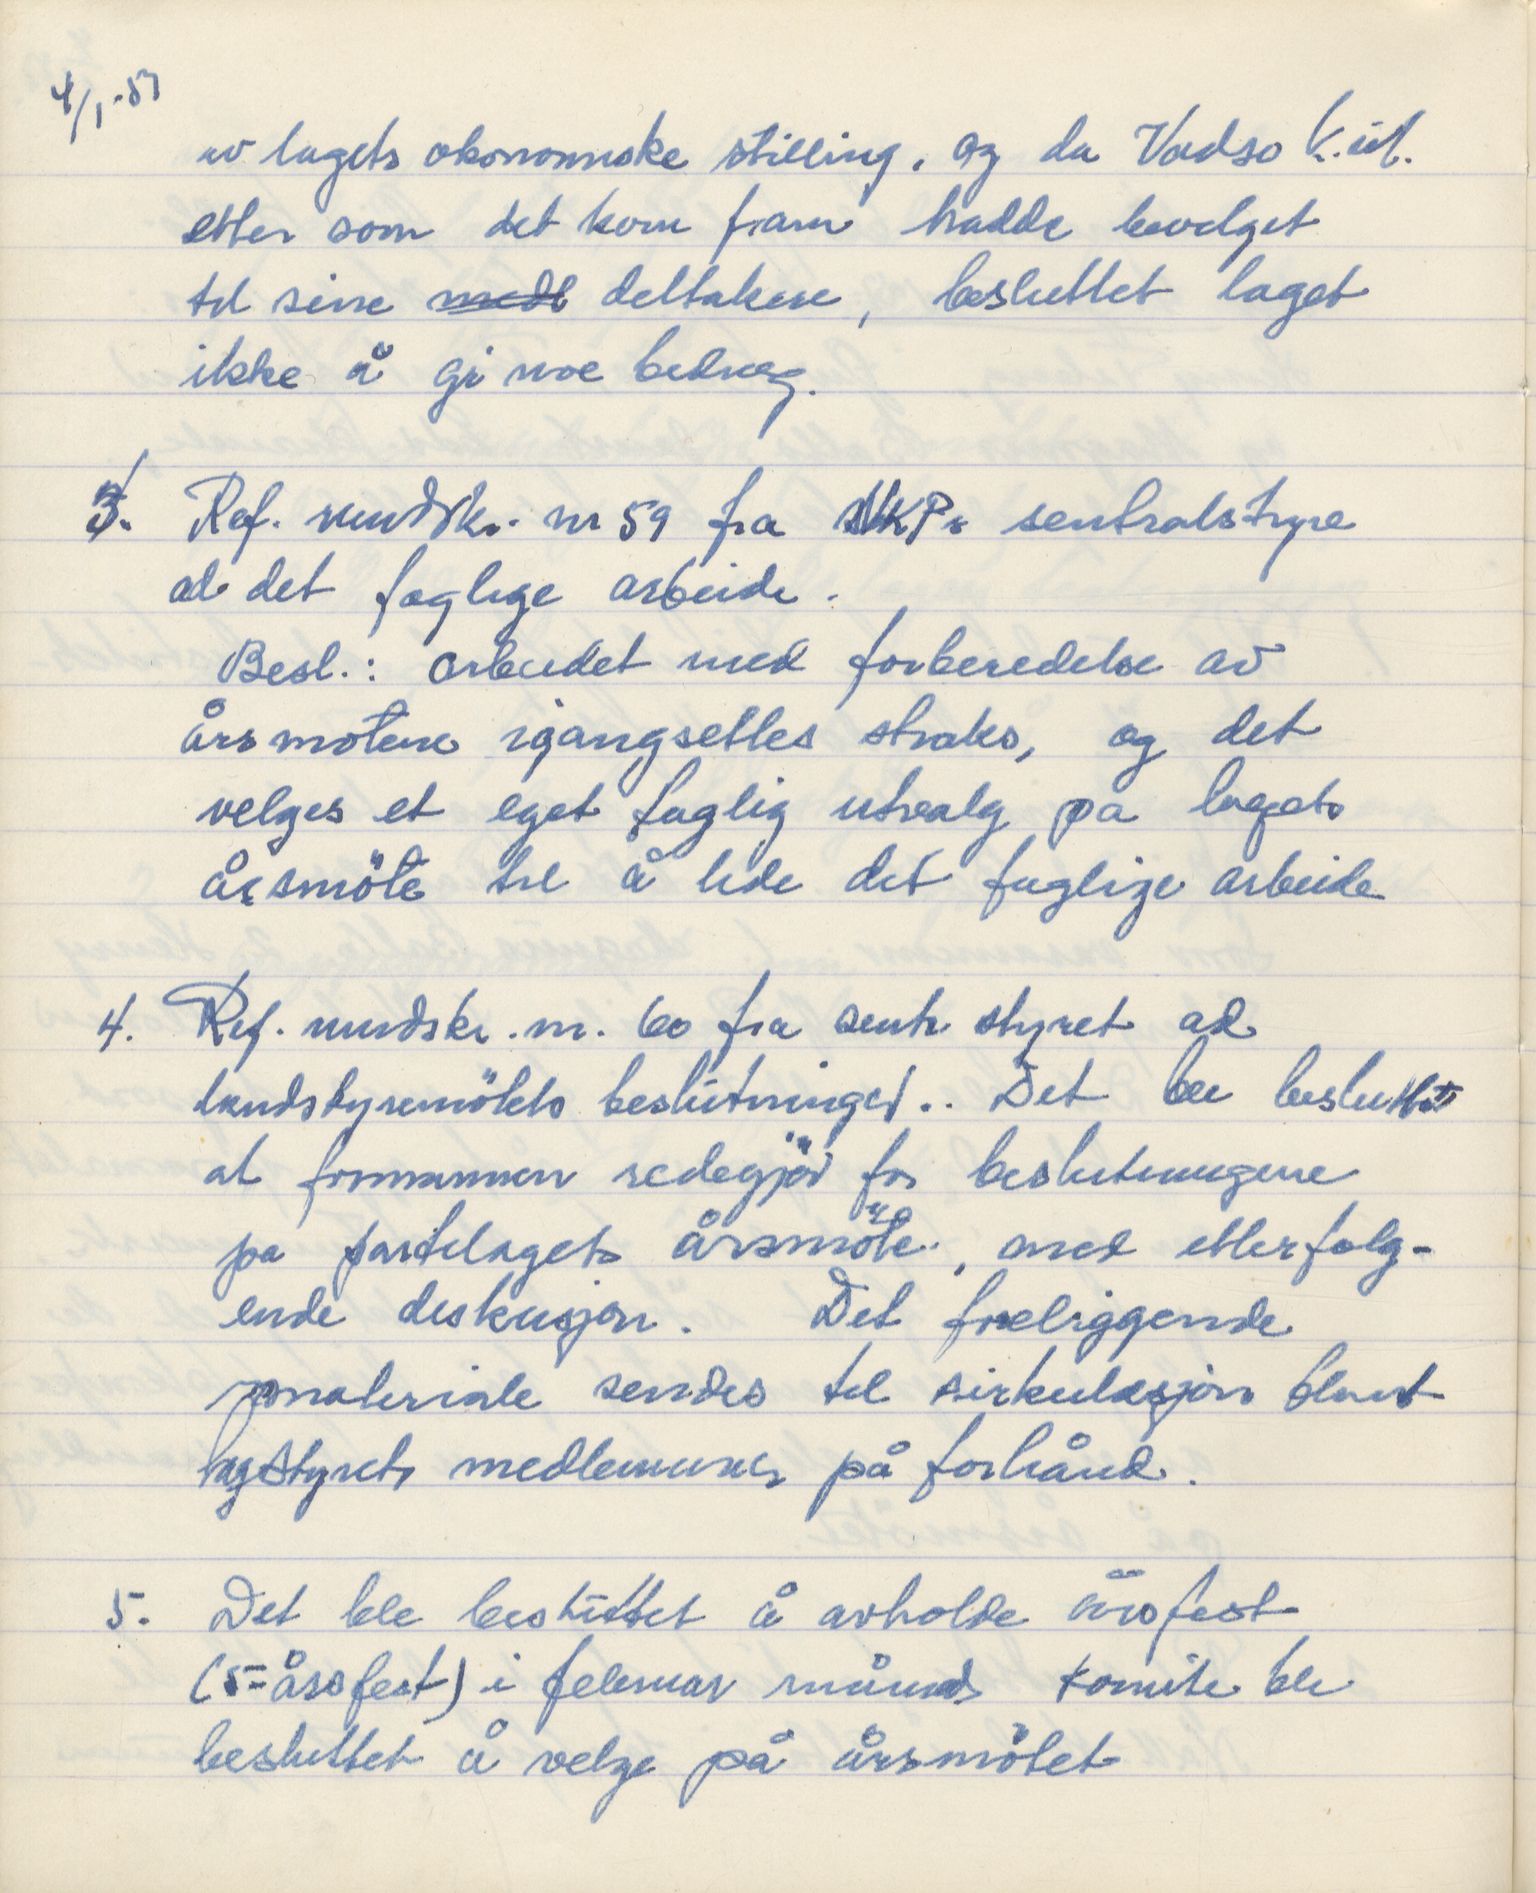 4/1-51
av lagets økonomiske stilling, og da Vadsø K.
etter som det kom fram hadde bevilget
til sine medl deltakere, besluttet laget
ikke å gi noe bidrag.
3. Ref. rundskr. nr 59 fra NKPs sentralstyre
ad det faglige arbeide.
Besl.: arbeidet med forberedelse av
årsmøtene igangsettes straks, og det
velges et eget faglig utvalg på lagets
årsmöte til å lede det faglige arbeide
4. Ref. rundskr. nr. 60 fra sentr. styret ad
landsstyremötets beslutninger.. Det ble besluttet
at formannen redegjör for beslutningene
på partilagets årsmöte, med etterfølg-
ende diskusjon. Det foreliggende
materiale sendes til sirkulasjon blant
lagstyrets medlemmer på forhånd.
5. Det ble besluttet å avholde årsfest
(5-årsfest) i februar måned Komite ble
besluttet å velge på årsmötet